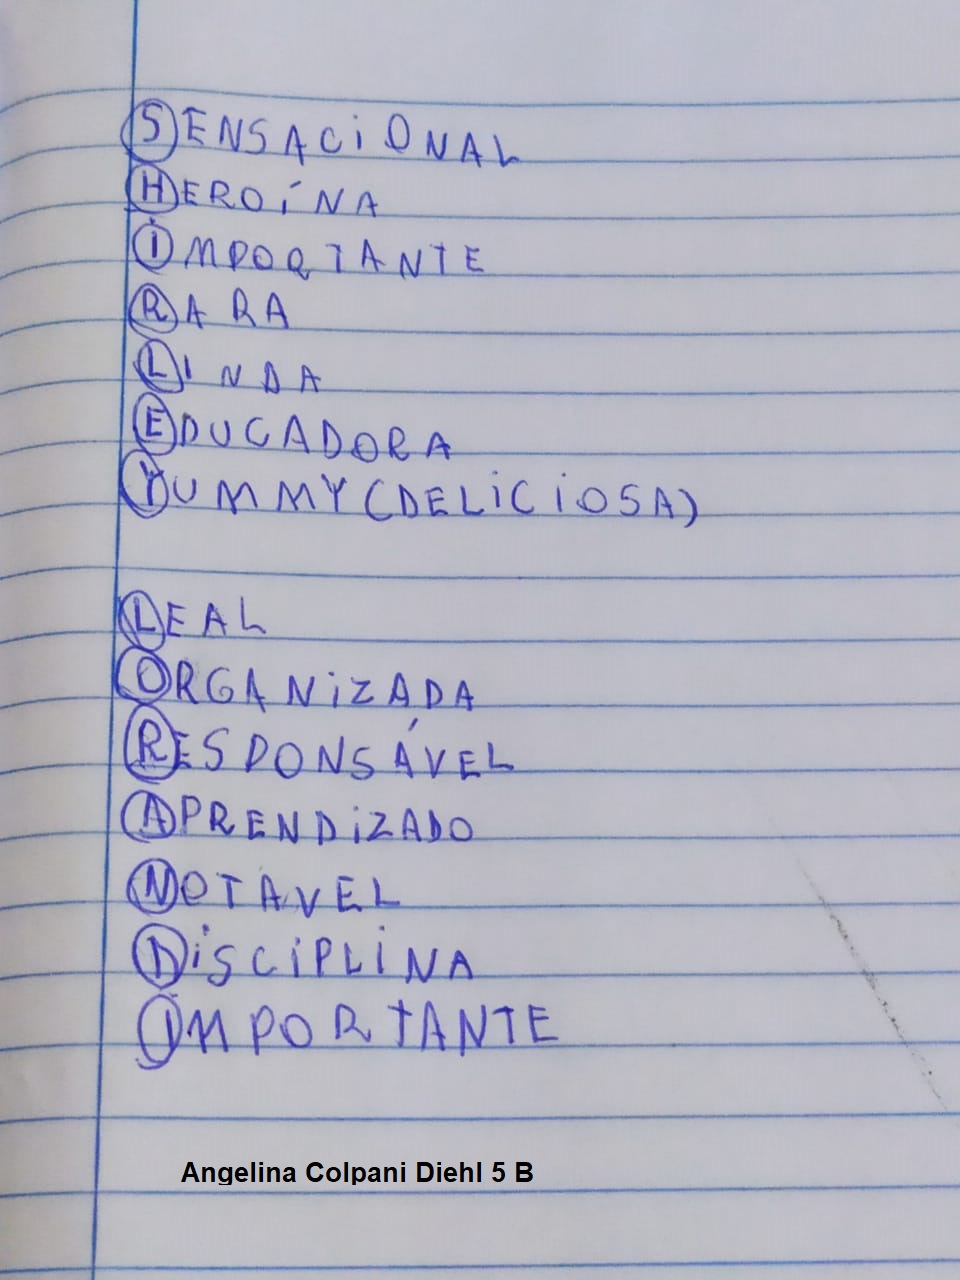 SENSACiONAL
HEROíNA
iMPORTANTE
RARA
LINDA
EDUCADORA
YUMMY (DELiCiOSA)
LEAL
ORGANiZADA
RESPONSÁVEL
APRENDiZADO
NOTAVEL
DiSCiPLiNA
iMPORTANTE
Angelina Colpani Diehl 5 B